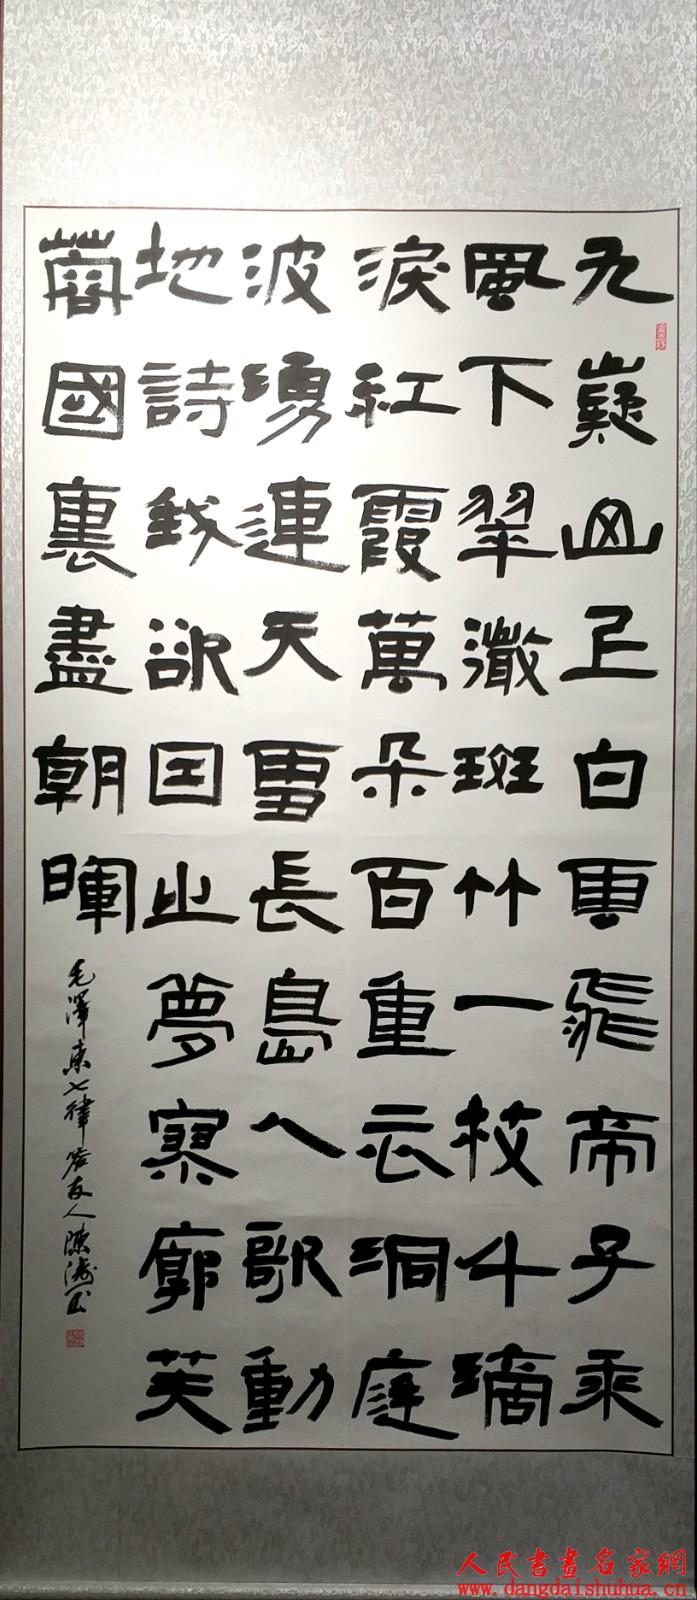 九嶷山上白雲飛帝子乘
風下翠微斑竹一枝千滴
淚紅霞萬朵百重衣洞庭
波湧連天雪長島人歌動
地詩我欲因之夢寥廓芙
蓉國裏盡朝暉
毛澤東七律答友人陳
人民書畫名家網
www.dangdaishuhua.cn